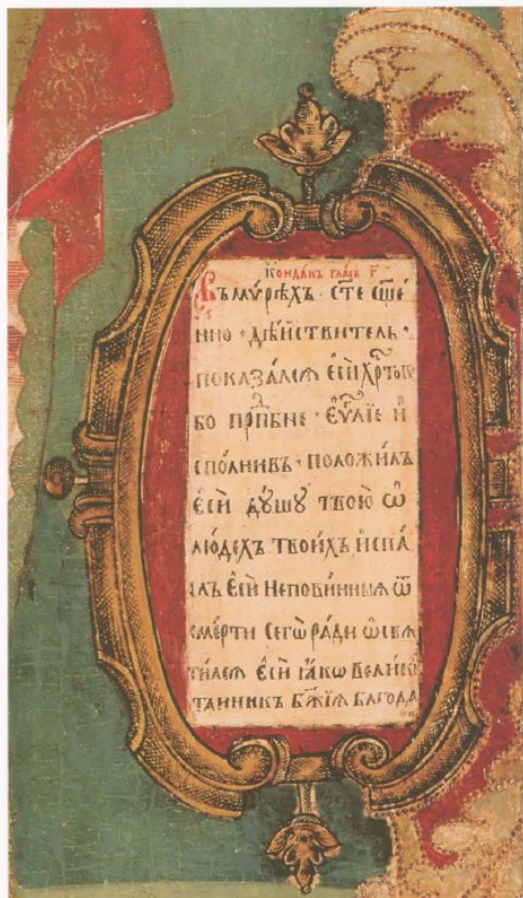 Кондакъ гласъ г҃
Въ мѵрѣхъ · ст҃е сщ҃е
нно · дѣйствитель ·
показа́лсѧ є҆сѝ хрⷭ҇тов
бо прпⷣбне · єѵⷢ҇лїе и҆
сполнивъ · положи́лъ
є҆сѝ дꙋ́шꙋ твою̀ ѡ҆
лю́дехъ твои́хъ и҆ спа́
лъ є҆сѝ неповинныѧ ѿ
сме́рти сегѡ̀ ра́ди ѡ҆свѧ
ти́лсѧ є҆сѝ ꙗ҆́кѡ велик
таинникъ бж҃їѧ благода